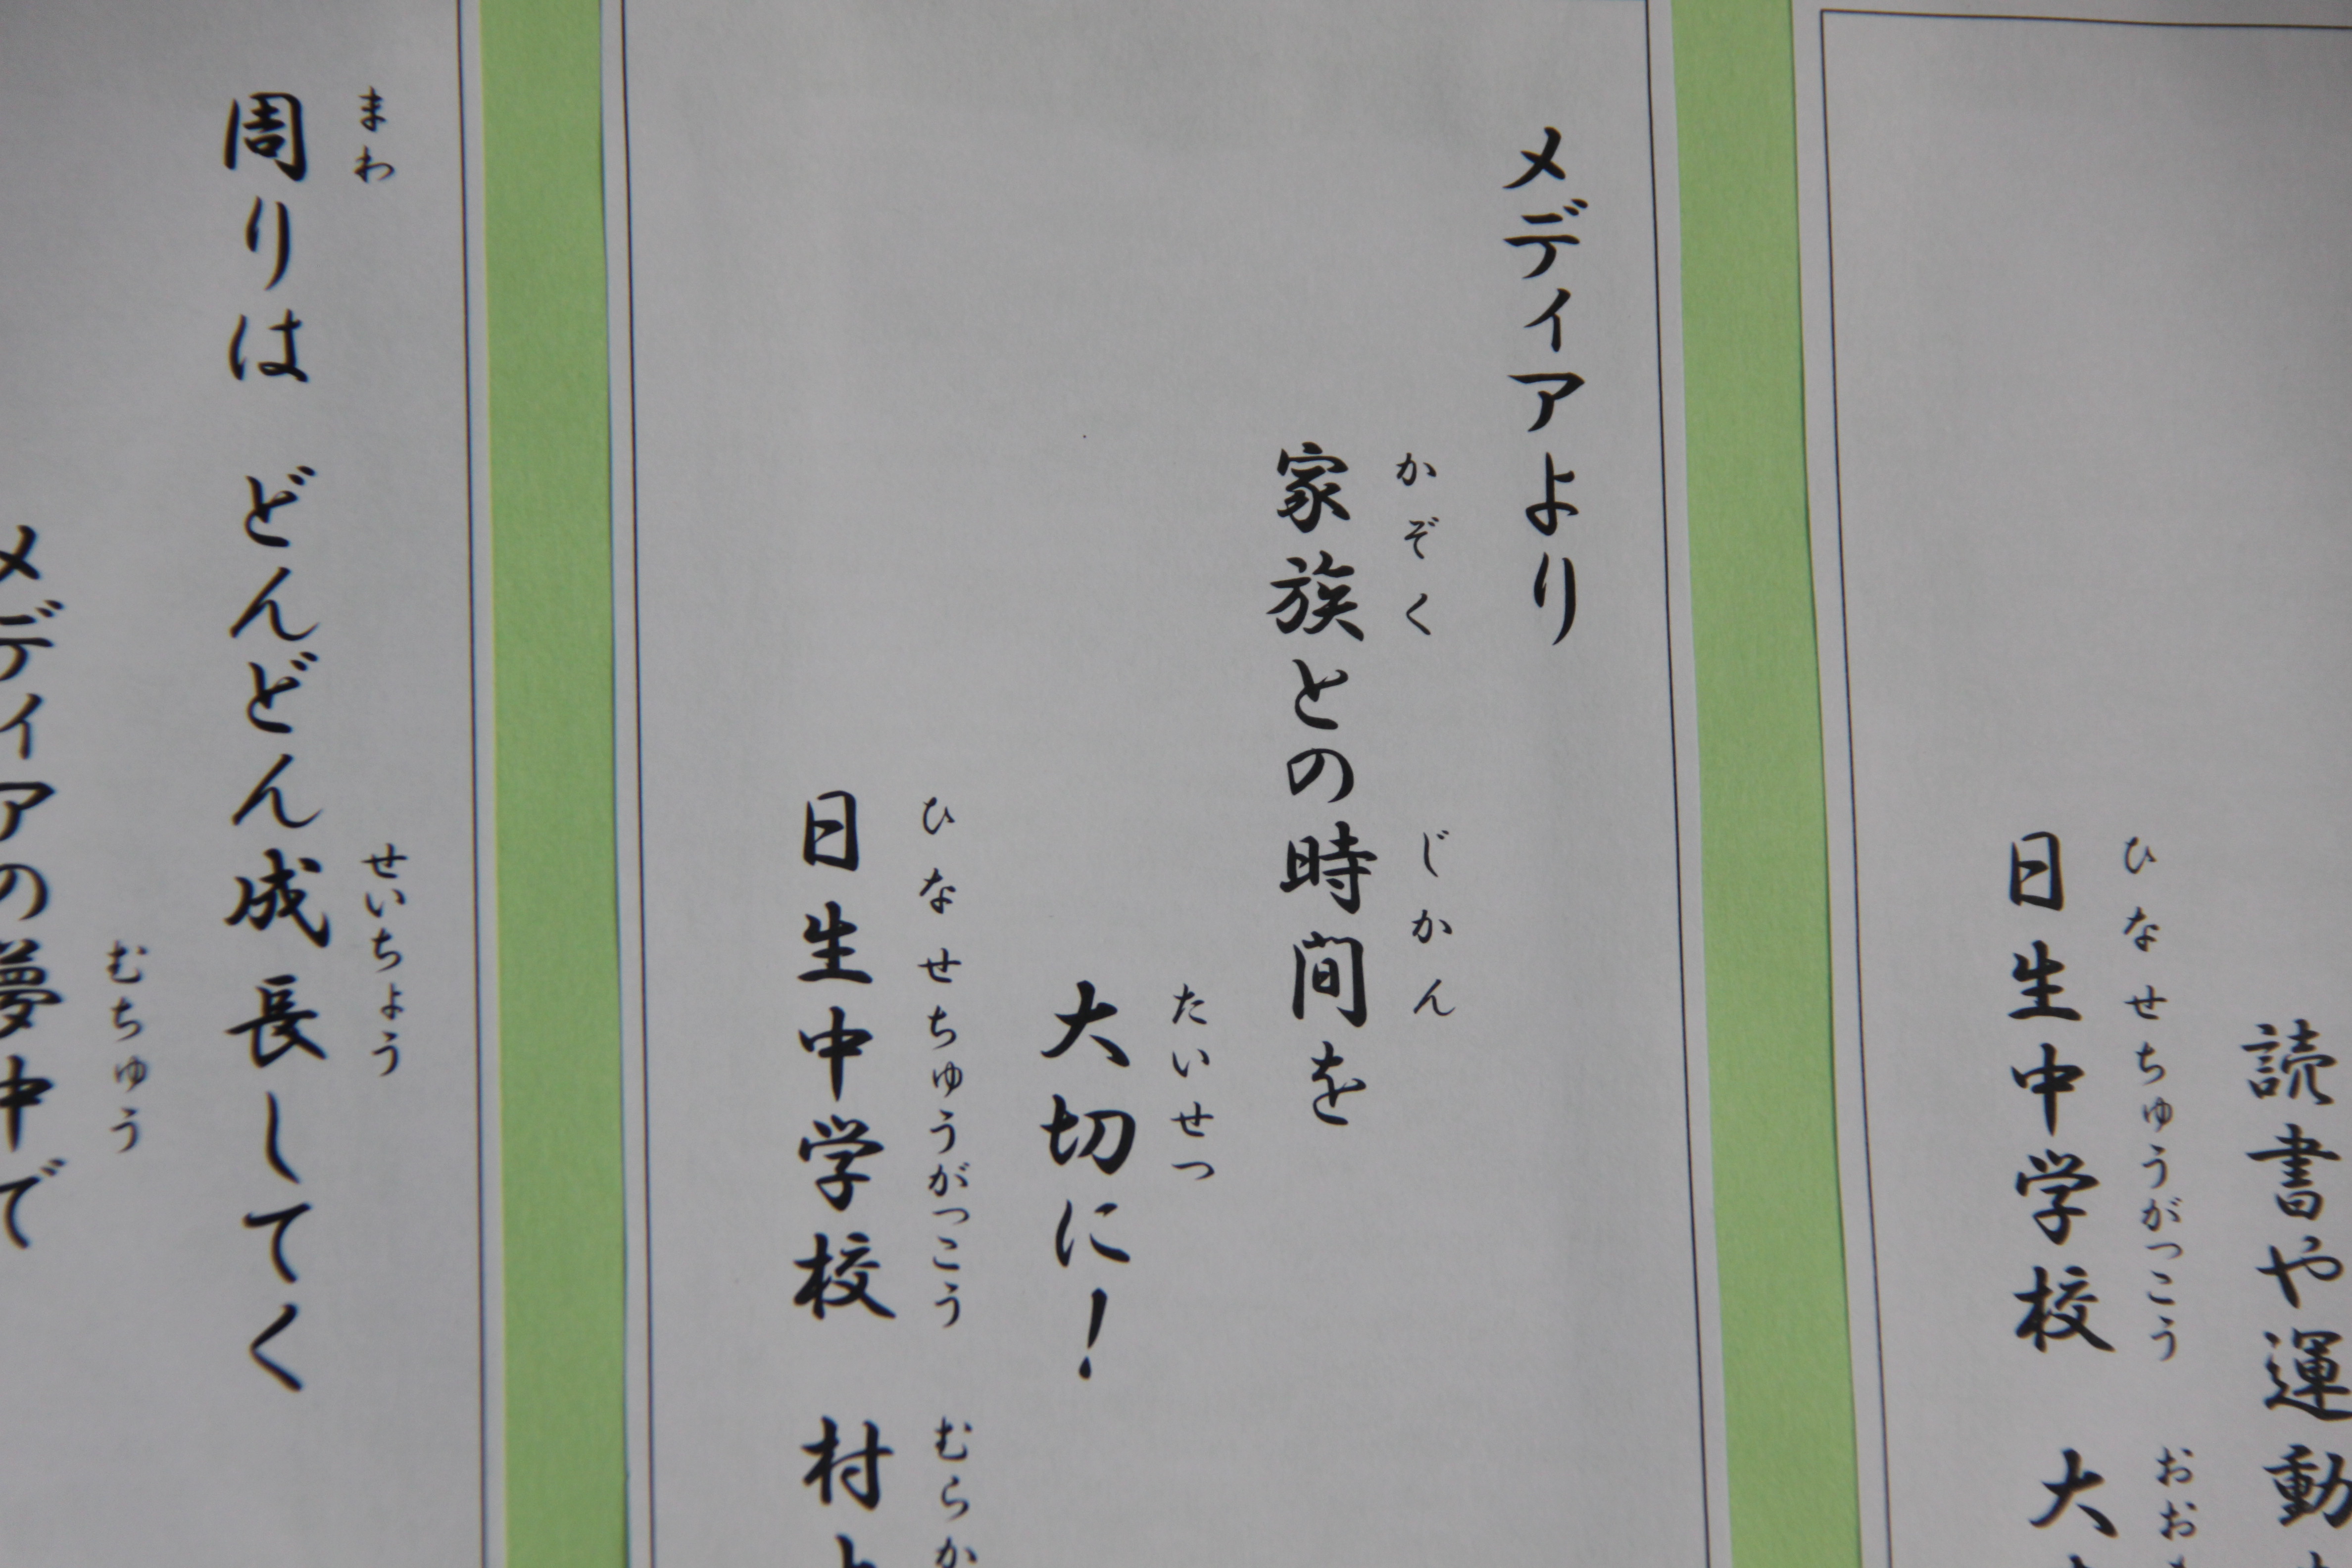 読書や運動
ひなせちゅうがっこう おお
日生中学校 大
メディアより
かぞく じかん
家族との時間を
たいせつ
大切に!
ひなせちゅうがっこう むらか
日生中学校 村上
まわ せいちょう
周りは どんどん成長してく
むちゅう
メディアの夢中で